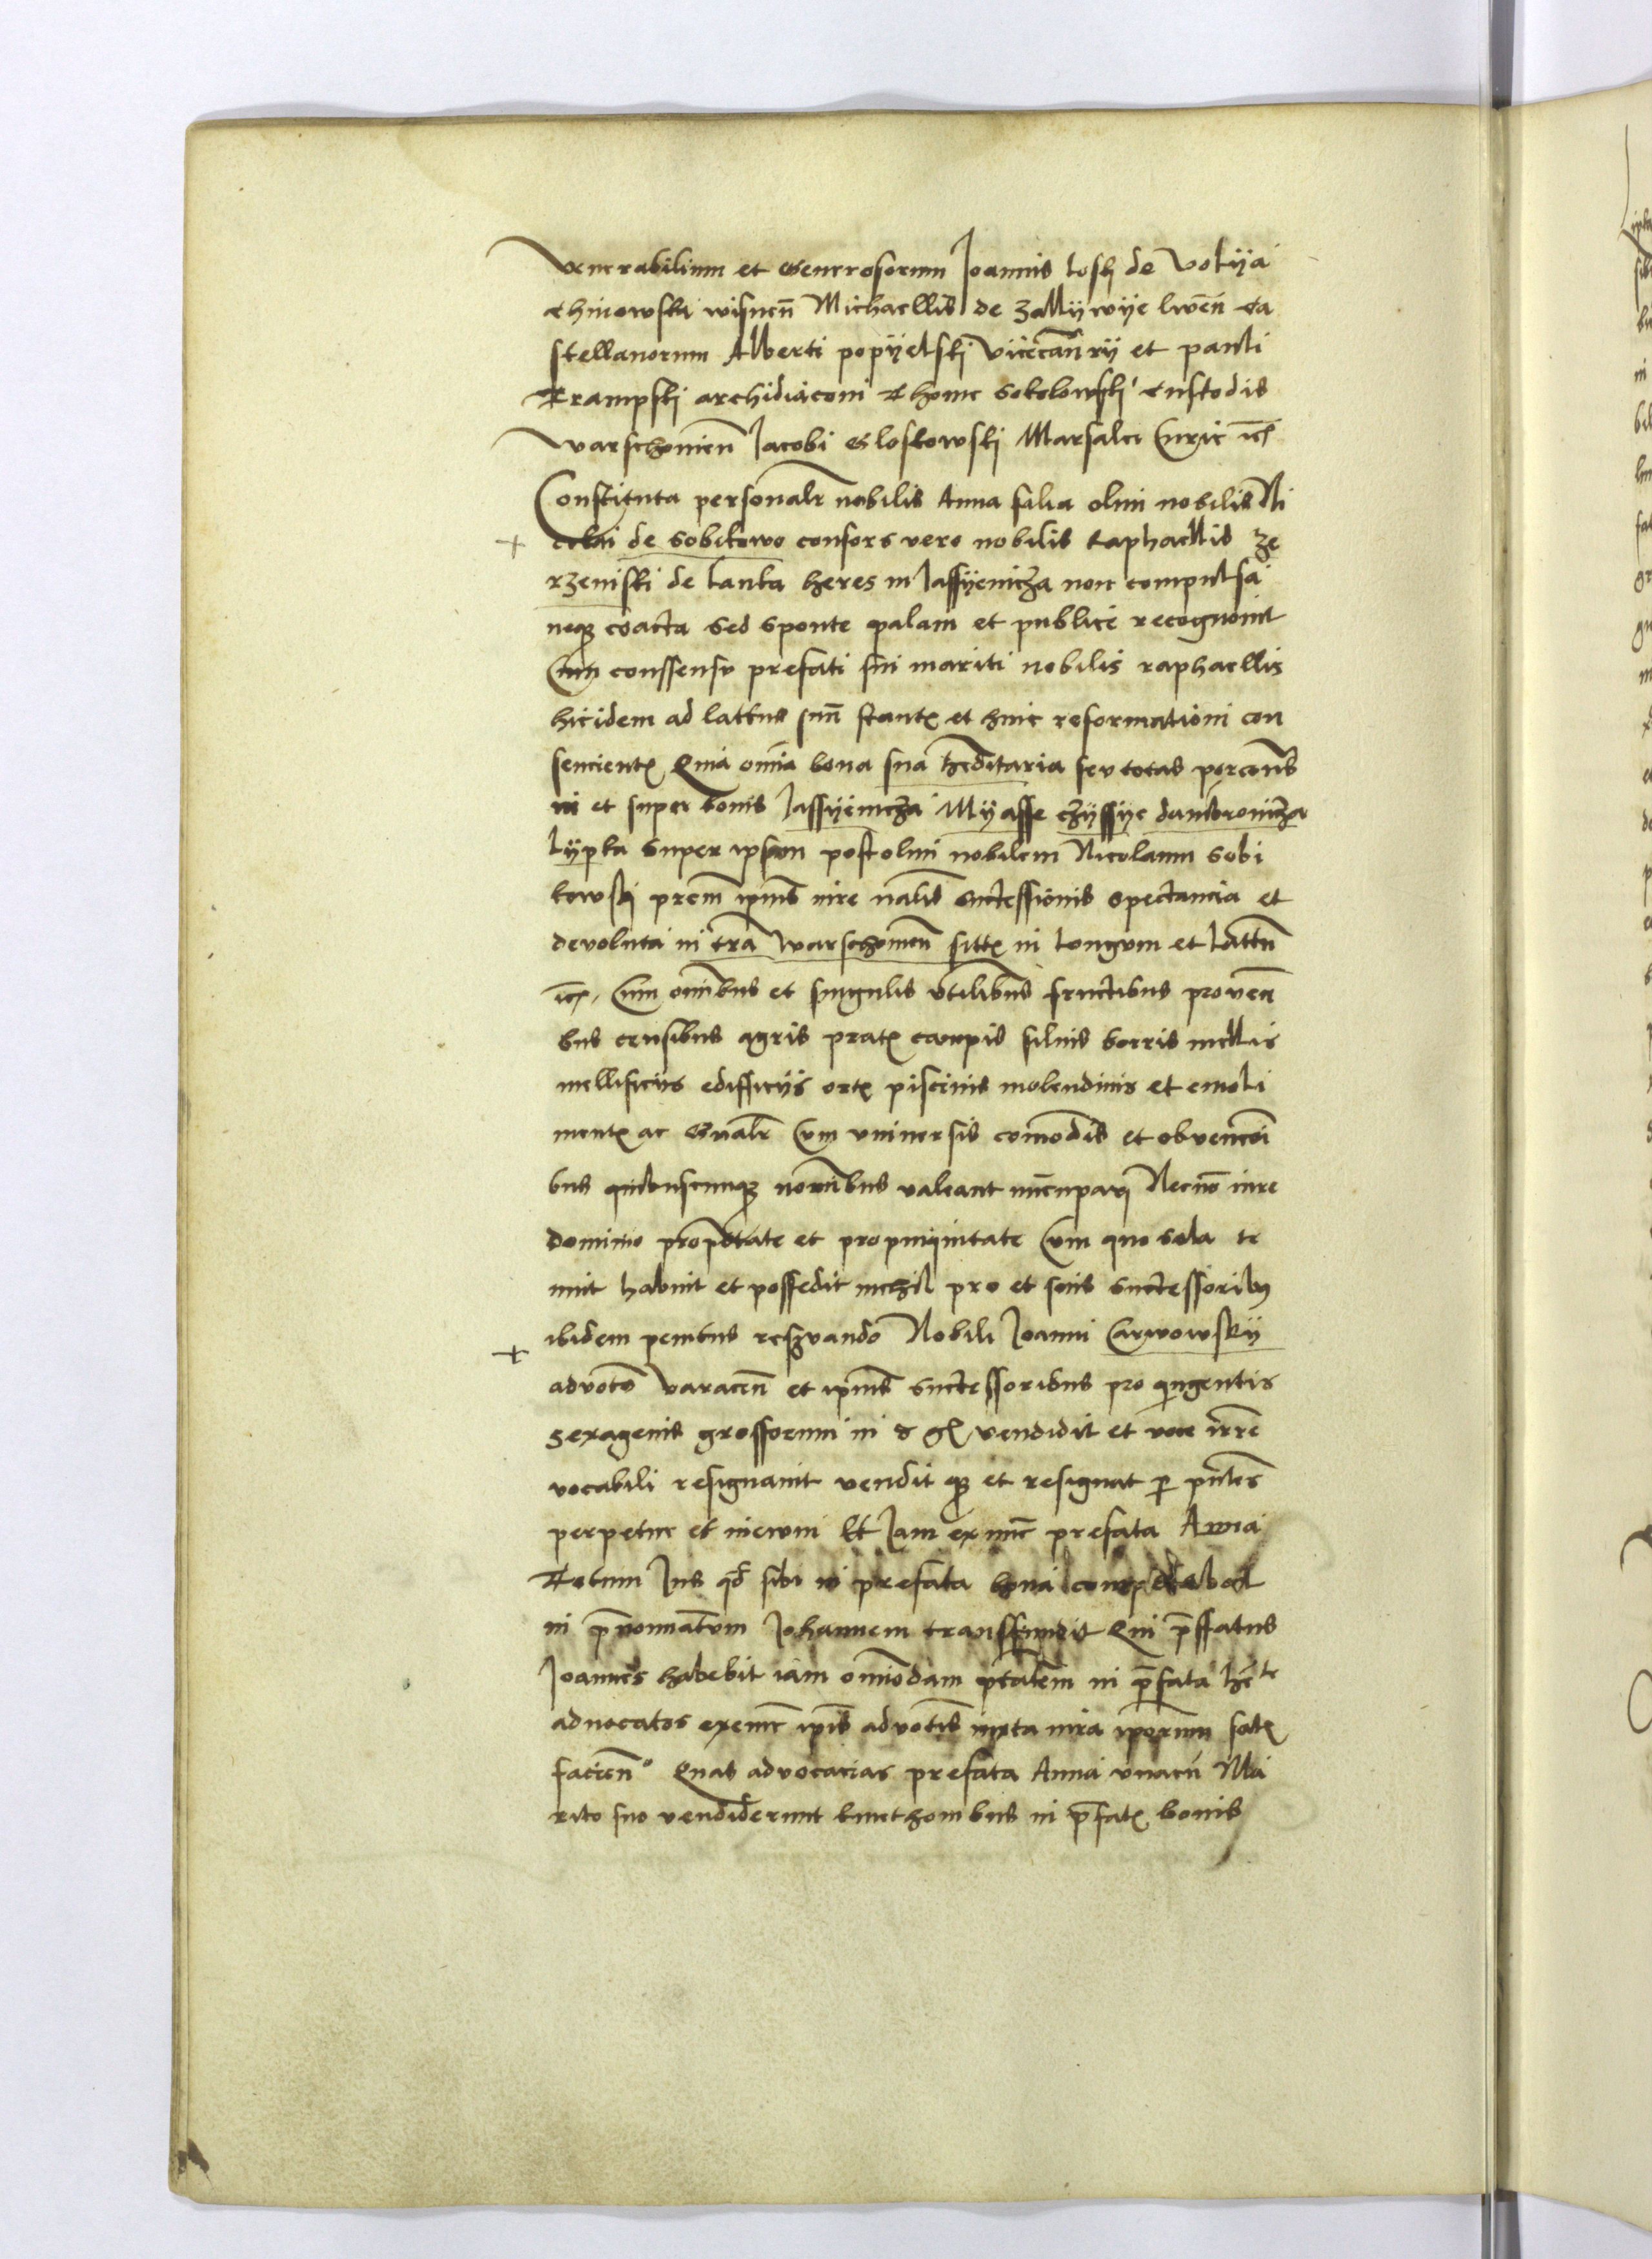 Venerabilium et Generosorum Joannis losch de Volija
Chinowska wisnen̄ Michaellis de Zallijwije liwēn Ca
stellanorum Alberti popijelski Vicecan̄rij et pauli
Krampski archidiaconi Thome Sokolowski Custodis
Warschouien̄ Jacobi Gloskowski Marsalci Curie
Constituta personalr̄ nobilis Anna filia olim nobilis Ni
colai de Sobikowo consors vero nobilis Raphaellis Ze
rzeniski de Lanta heres in Jassijenicza non compulsa
neqȝ coacta Sed sponte palam et publice recognouit
Cum conssensu prefati sui mariti nobilis raphaellis
hicidem ad lattus suū stantꝭ et huic reformationi con
sencientꝭ Quia om̄ia bona sua heditaria seu totas porcōns
in et super bonis Jassijenicza Mijasse czijssije dambrouicza
Lijpka super ipsam post olim nobilem Nicolaum Sobi
kowski prem̄ ipius iure nal̄is successionis spectancia et
devoluta in tr̄a Warschouien̄ sittꝭ in Longum et Lattū
Cum om̄ibus et singulis utilibus fructibus provenī
bus censibus agris pratꝭ campis siluis borris mellis
mellificiis edifficijs ortꝭ piscinis molendinis et emoli
mentꝭ ac Gnalr̄ Cum vniuersis com̄odis et obvencōi
bus quibuscunqȝ nomībus valeant nūcupari Necnō iure
dominio proprietate et propinquitate Cum quo sola te
nuit habuit et possedit nichil pro et suis successoribȝ
ibidem penitus res̄uando Nobili Joanni Carwowskij
advoto Varacen̄ et ipius successoribus pro quingentis
sexagenis grossorum in vendidit et vore irre
vocabili resignauit vendit qȝ et resignat ꝑ pn̄tes
perpetue et in ewm Et Jam ex nūc prefata Anna
Totum Jus qd̄ sibi in prefata bona competebat
in p̄nominatum Johannem transfundit Qui p̄ffatus
Joannes habebit iam om̄odam p̄tatem in p̄fata hēte
aduocatos exemē ip̄is advotis iuxta iura ip̄orum satꝭ
faciēn Quas advocacias prefata Anna vnacū Ma
rito suo vendiderunt kmethonibus in p̄fatꝭ bonis